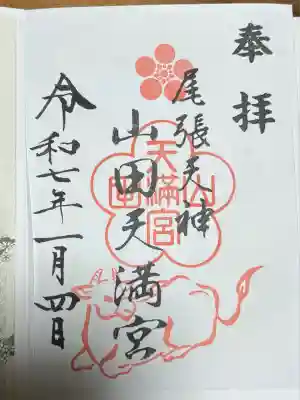 奉拝
尾張天神
山田天満宮
山田
天満宮
令和七年一月四日